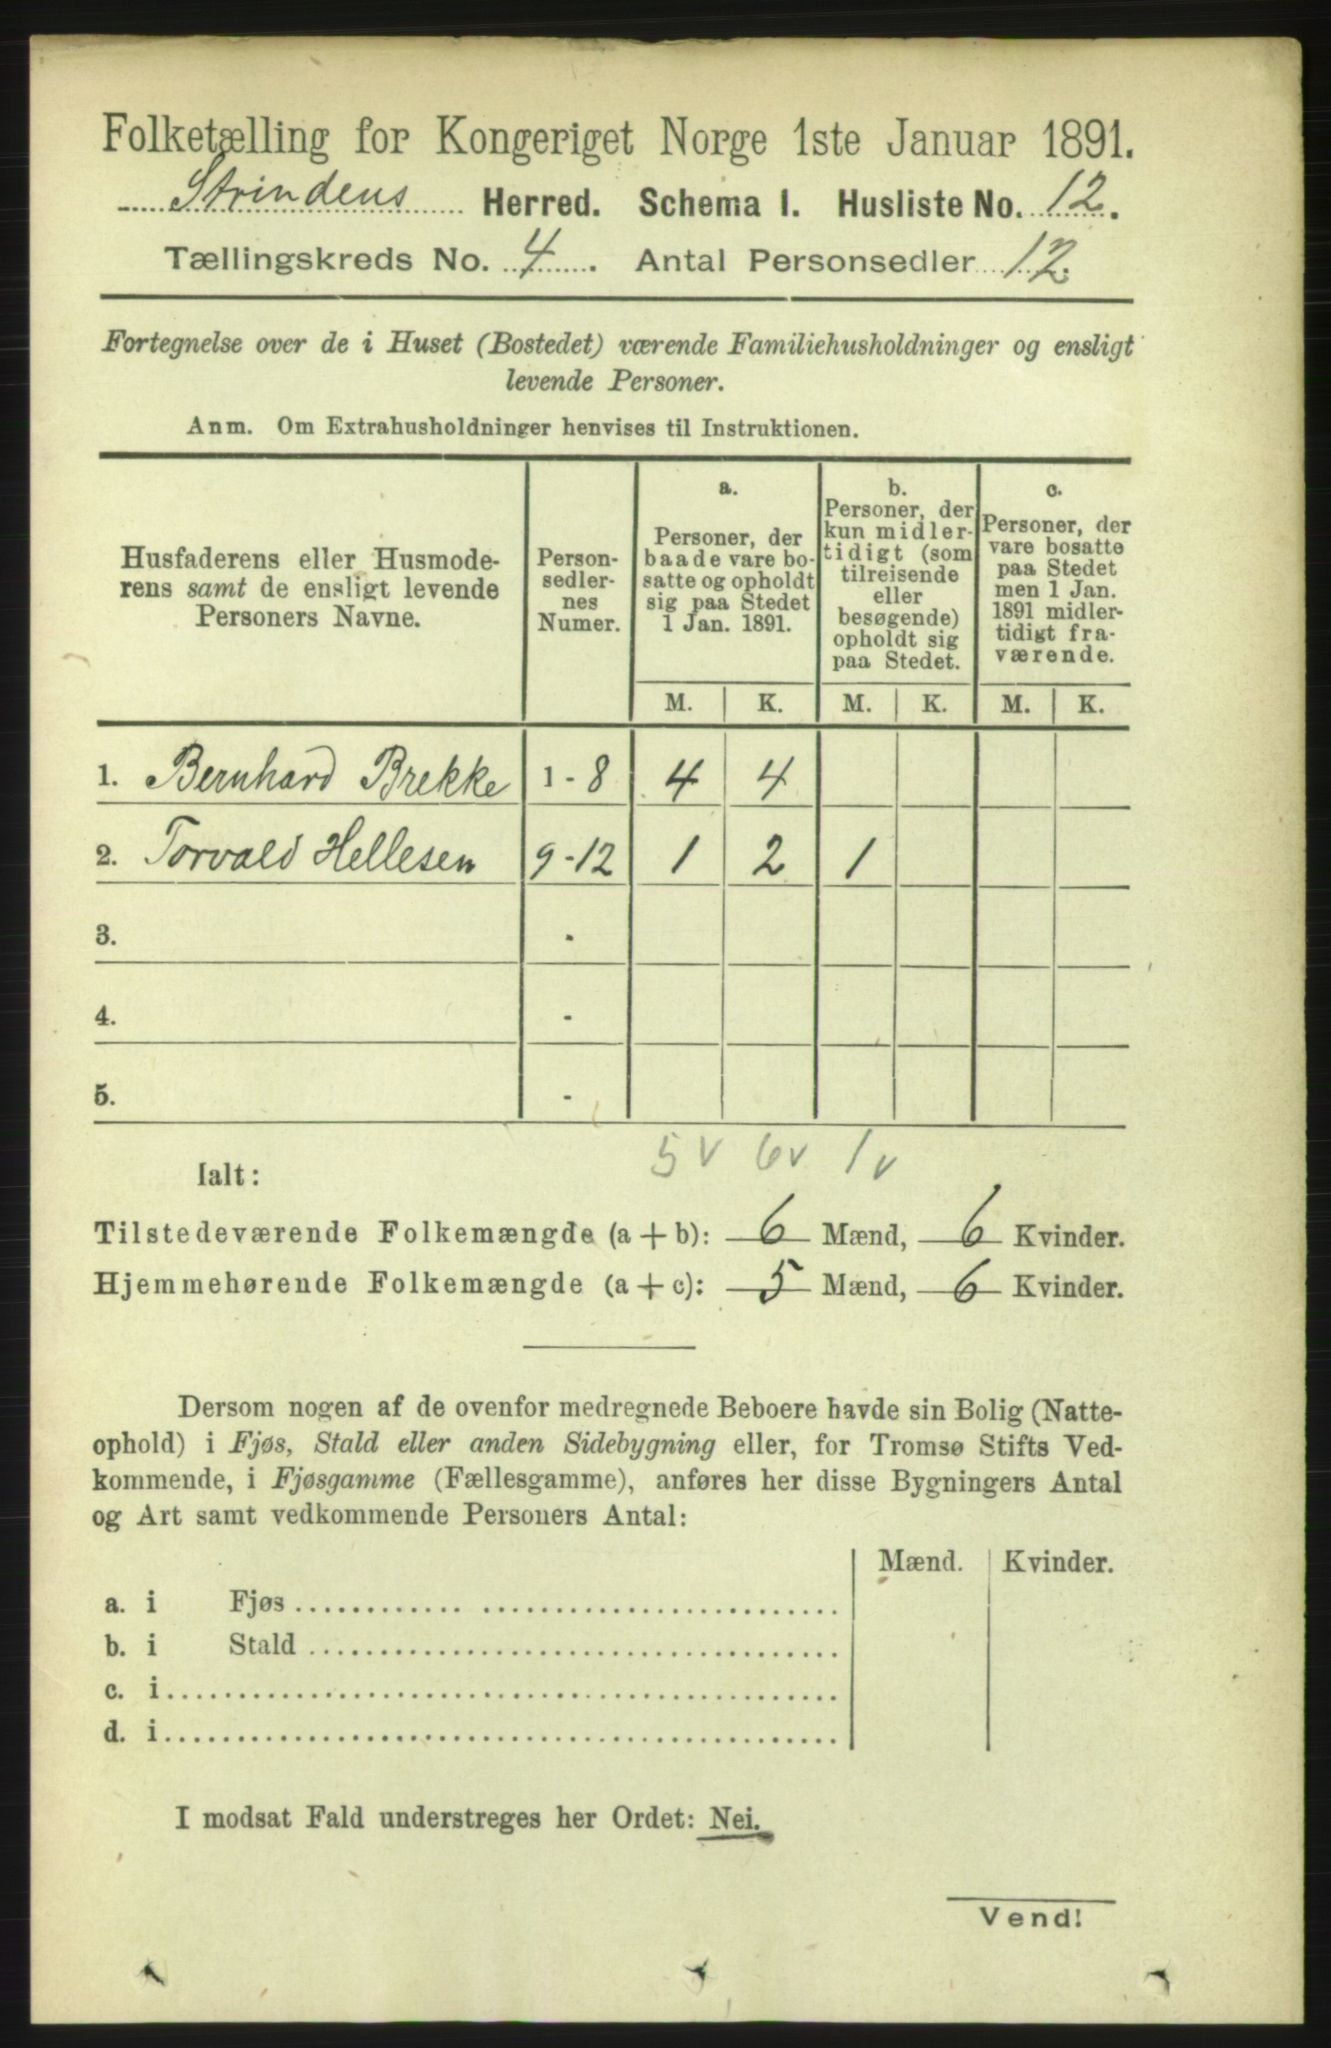 Folketælling for Kongeriget Norge 1ste Januar 1891.
Strindens Herred. Schema I. Husliste No. 12.
Tællingskreds No. 4. Antal Personsedler 12.
Fortegnelse over de i Huset (Bostedet) værende Familiehusholdninger og ensligt
levende Personer.
Anm. Om Extrahusholdninger henvises til Instruktionen.
Husfaderens eller Husmode-
rens samt de ensligt levende
Personers Navne.
Person-
sedler-
nes
Numer.
a.
Personer, der
baade vare bo-
satte og opholdt
sig paa Stedet
1 Jan. 1891.
b.
Personer, der
kun midler-
tidigt (som
tilreisende
eller
besøgende)
opholdt sig
paa Stedet.
c.
Personer, der
vare bosatte
paa Stedet
men 1 Jan.
1891 midler-
tidigt fra-
værende.
M. K. M. K. M. K.
1. Bernhard Brekke 1 - 8 4 4
2. Torvald Hellesen 9 - 12 1 2 1
3. -
4. -
5. -
5 v 6 v 1 v
Ialt:
Tilstedeværende Folkemængde (a + b): 6 Mænd, 6 Kvinder.
Hjemmehørende Folkemængde (a + c): 5 Mænd, 6 Kvinder.
Dersom nogen af de ovenfor medregnede Beboere havde sin Bolig (Natte-
ophold) i Fjøs, Stald eller anden Sidebygning eller, for Tromsø Stifts Ved-
kommende, i Fjøsgamme (Fællesgamme), anføres her disse Bygningers Antal
og Art samt vedkommende Personers Antal:
Mænd. Kvinder.
a. i Fjøs
b. i Stald
c. i
d. i
I modsat Fald understreges her Ordet: Nei.
Vend!